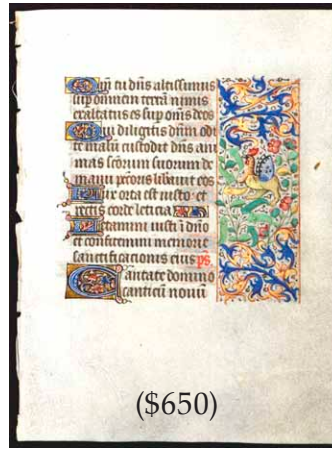 Qm̄ tu dn̄s altissimus
sup omnem terrā nimis
exaltatus es sup om̄s deos
Qui diligitis dn̄m odi
te malū custodit dn̄s ani
mas sc̄orum suorum de
manu pctōris liberabit eos
Lux orta est iusto et
rectis corde leticia
Letamini iusti ī dn̄o
et confitemini memorie
sanctificacionis eius ps̄
Cantate domino
canticū nouū
($650)